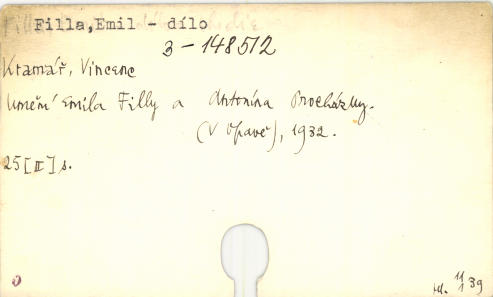 Filla,Emil - dílo
3-148512
Kramář, Vincenc
Umění Emila Filly a Antonína Procházky.
(V Opavě), 1932.
25[II]s.
11 39